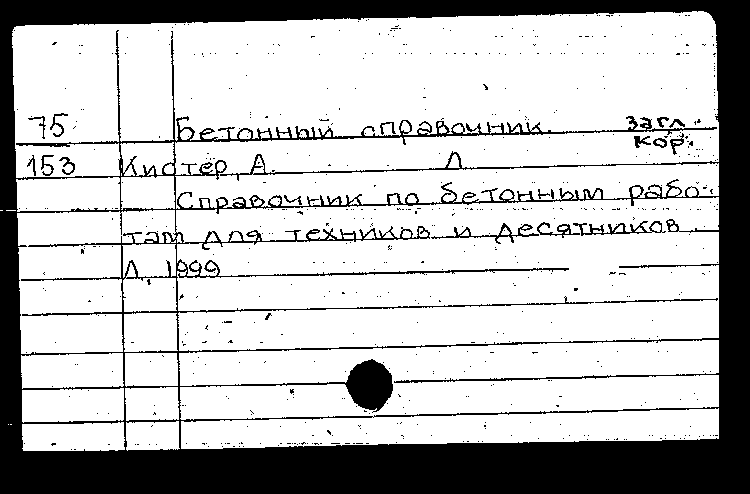 75 Бетонный справочник. Загл.
Кор.
153 Кистер, А. Л
Справочник по бетонным рабо-
там для техников и десятников.
Л, 1999